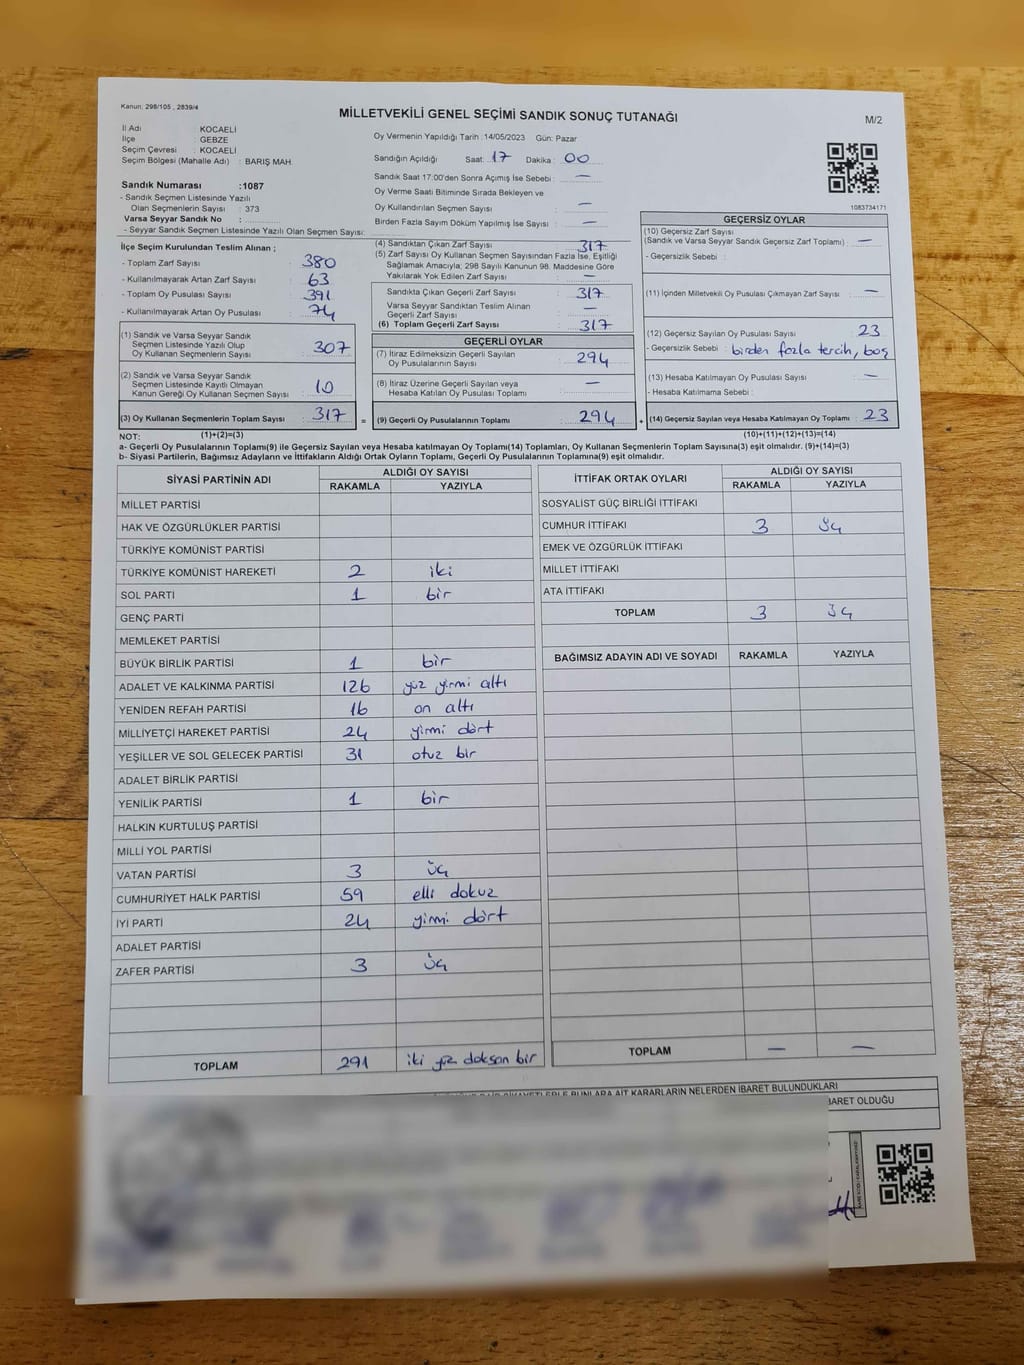 Kanun: 298/105 , 2839/4
MİLLETVEKİLİ GENEL SEÇİMİ SANDIK SONUÇ TUTANAĞI
M/2
İl Adı KOCAELİ
İlçe GEBZE
Seçim Çevresi : KOCAELİ
Seçim Bölgesi (Mahalle Adı) : BARIŞ MAH.
Sandık Numarası :1087
- Sandık Seçmen Listesinde Yazılı
Olan Seçmenlerin Sayısı : 373
Varsa Seyyar Sandık No :
- Seyyar Sandık Seçmen Listesinde Yazılı Olan Seçmen Sayısı:
Oy Vermenin Yapıldığı Tarih :14/05/2023 Gün: Pazar
Sandığın Açıldığı Saat: 17 Dakika : 00
Sandık Saat 17:00'den Sonra Açımış İse Sebebi : —
Oy Verme Saati Bitiminde Sırada Bekleyen ve
Oy Kullandırılan Seçmen Sayısı : —
Birden Fazla Sayım Döküm Yapılmış İse Sayısı : —
1083734171
İlçe Seçim Kurulundan Teslim Alınan ;
- Toplam Zarf Sayısı : 380
- Kullanılmayarak Artan Zarf Sayısı : 63
- Toplam Oy Pusulası Sayısı : 391
- Kullanılmayarak Artan Oy Pusulası : 74
(1) Sandık ve Varsa Seyyar Sandık
Seçmen Listesinde Yazılı Olup
Oy Kullanan Seçmenlerin Sayısı : 307
(2) Sandık ve Varsa Seyyar Sandık
Seçmen Listesinde Kayıtlı Olmayan
Kanun Gereği Oy Kullanan Seçmen Sayısı : 10
(3) Oy Kullanan Seçmenlerin Toplam Sayısı : 317
(4) Sandıktan Çıkan Zarf Sayısı : 317
(5) Zarf Sayısı Oy Kullanan Seçmen Sayısından Fazla İse, Eşitliği
Sağlamak Amacıyla; 298 Sayılı Kanunun 98. Maddesine Göre
Yakılarak Yok Edilen Zarf Sayısı : —
Sandıkta Çıkan Geçerli Zarf Sayısı : 317
Varsa Seyyar Sandıktan Teslim Alınan
Geçerli Zarf Sayısı : —
(6) Toplam Geçerli Zarf Sayısı : 317
GEÇERLİ OYLAR
(7) İtiraz Edilmeksizin Geçerli Sayılan
Oy Pusulalarının Sayısı : 294
(8) İtiraz Üzerine Geçerli Sayılan veya
Hesaba Katılan Oy Pusulası Toplamı : —
= (9) Geçerli Oy Pusulalarının Toplamı : 294
GEÇERSİZ OYLAR
(10) Geçersiz Zarf Sayısı
(Sandık ve Varsa Seyyar Sandık Geçersiz Zarf Toplamı) : —
- Geçersizlik Sebebi :
(11) İçinden Milletvekili Oy Pusulası Çıkmayan Zarf Sayısı : —
(12) Geçersiz Sayılan Oy Pusulası Sayısı : 23
- Geçersizlik Sebebi : birden fazla tercih, boş
(13) Hesaba Katılmayan Oy Pusulası Sayısı : —
- Hesaba Katılmama Sebebi :
+ (14) Geçersiz Sayılan veya Hesaba Katılmayan Oy Toplamı : 23
NOT: (1)+(2)=(3) (10)+(11)+(12)+(13)=(14)
a- Geçerli Oy Pusulalarının Toplamı(9) ile Geçersiz Sayılan veya Hesaba katılmayan Oy Toplamı(14) Toplamları, Oy Kullanan Seçmenlerin Toplam Sayısına(3) eşit olmalıdır. (9)+(14)=(3)
b- Siyasi Partilerin, Bağımsız Adayların ve İttifakların Aldığı Ortak Oyların Toplamı, Geçerli Oy Pusulalarının Toplamına(9) eşit olmalıdır.
SİYASİ PARTİNİN ADI ALDIĞI OY SAYISI
RAKAMLA YAZIYLA
MİLLET PARTİSİ
HAK VE ÖZGÜRLÜKLER PARTİSİ
TÜRKİYE KOMÜNİST PARTİSİ
TÜRKİYE KOMÜNİST HAREKETİ 2 iki
SOL PARTİ 1 bir
GENÇ PARTİ
MEMLEKET PARTİSİ
BÜYÜK BİRLİK PARTİSİ 1 bir
ADALET VE KALKINMA PARTİSİ 126 yüz yirmi altı
YENİDEN REFAH PARTİSİ 16 on altı
MİLLİYETÇİ HAREKET PARTİSİ 24 yirmi dört
YEŞİLLER VE SOL GELECEK PARTİSİ 31 otuz bir
ADALET BİRLİK PARTİSİ
YENİLİK PARTİSİ 1 bir
HALKIN KURTULUŞ PARTİSİ
MİLLİ YOL PARTİSİ
VATAN PARTİSİ 3 üç
CUMHURİYET HALK PARTİSİ 59 elli dokuz
İYİ PARTİ 24 yirmi dört
ADALET PARTİSİ
ZAFER PARTİSİ 3 üç
TOPLAM 291 iki yüz doksan bir
İTTİFAK ORTAK OYLARI ALDIĞI OY SAYISI
RAKAMLA YAZIYLA
SOSYALİST GÜÇ BİRLİĞİ İTTİFAKI
CUMHUR İTTİFAKI 3 üç
EMEK VE ÖZGÜRLÜK İTTİFAKI
MİLLET İTTİFAKI
ATA İTTİFAKI
TOPLAM 3 üç
BAĞIMSIZ ADAYIN ADI VE SOYADI RAKAMLA YAZIYLA
TOPLAM — —
BUNLARA AİT KARARLARIN NELERDEN İBARET BULUNDUKLARI
İBARET OLDUĞU